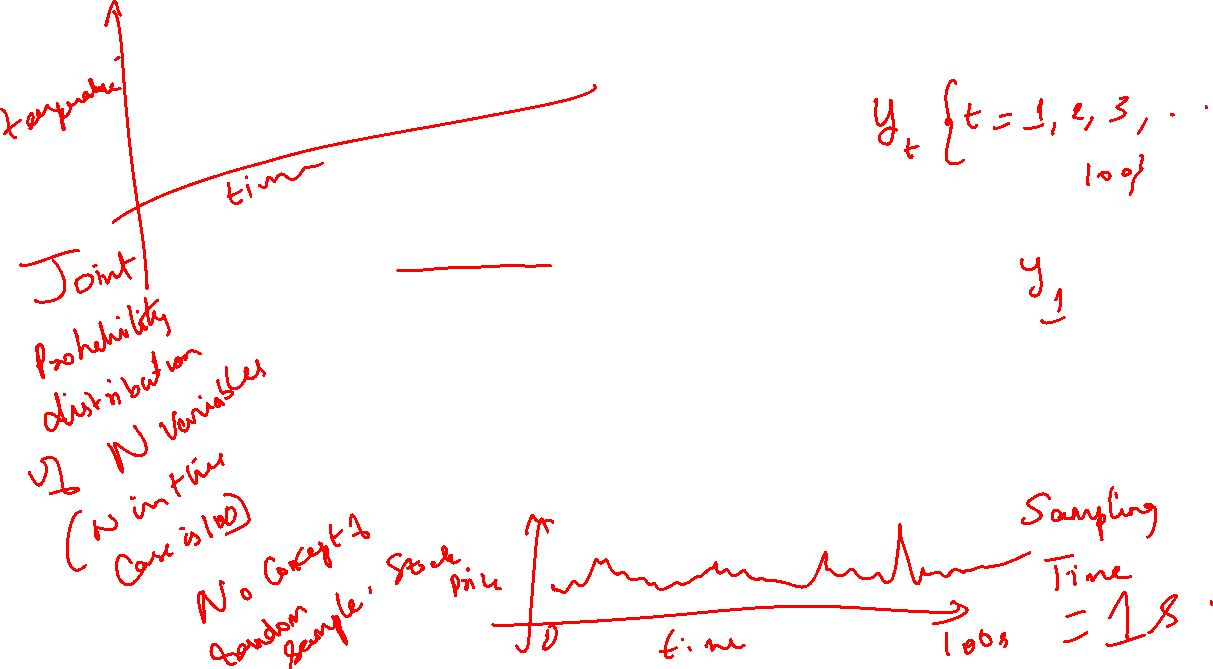 temperature
time
Y_t {t = 1, 2, 3, ...
100}
y_1
Joint
Probability
distribution
of N variables
(N in this
case is 100)
No concept of
random
sample.
Stock
price
0
time
100s
Sampling
Time
= 1s.